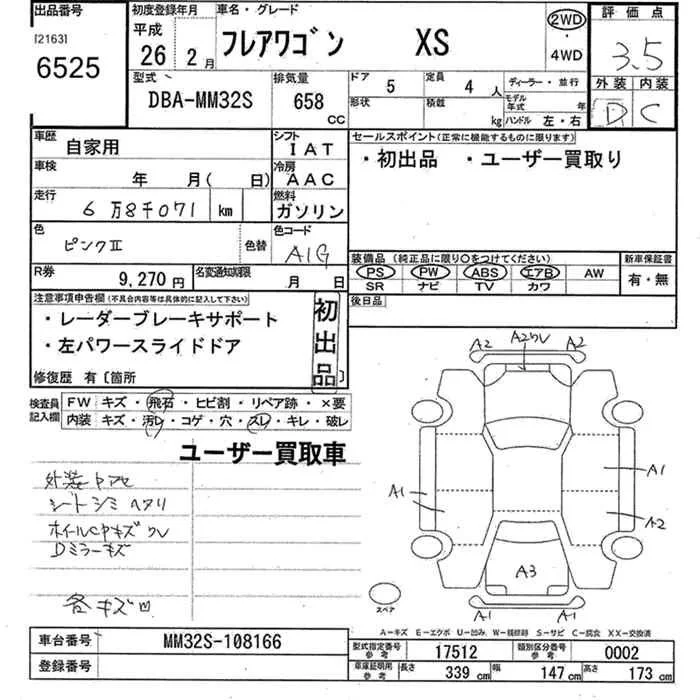 出品番号
[2163]
6525
初度登録年月
平成 26年 2月
車名・グレード
フレアワゴン XS
2WD
・
4WD
評価点
3.5
外装 内装
D C
型式
DBA-MM32S
排気量
658 CC
ドア 5
定員 4 人
形状
積載 kg
ディーラー・並行
モデル年式 年
ハンドル 左・右
車歴 自家用
シフト IAT
車検 年 月( 日)
冷房 AAC
走行 6万8千071 km
燃料 ガソリン
色 ピンクⅡ
色替
色コード A1G
R券 9,270円
名変通知期限 月 日
セールスポイント(正常に機能するものに限ります)
・初出品 ・ユーザー買取り
装備品 (純正品に限り○をつけてください)
PS PW ABS エアB AW
SR ナビ TV カワ
新車保証書
有・無
後日品
注意事項申告欄(不具合内容等は具体的に記入して下さい)
・レーダーブレーキサポート
・左パワースライドドア
初出品
修復歴 有〔箇所
検査員記入欄
FW キズ・飛石・ヒビ割・リペア跡・×要
内装 キズ・汚レ・コゲ・穴・スレ・キレ・破レ
ユーザー買取車
外装ヤケアセ
シートシミ ヘタリ
ホイールCPキズ ワレ
Dミラーキズ
各キズ凹
A2 A2ワレ A2
A1
A1
A2
A3
A1 A1
スペア
A−キズ E−エクボ U−凹み W−補修跡 S−サビ C−腐食 XX−交換済
車台番号 MM32S-108166
登録番号
型式指定番号 参考 17512
類別区分番号 参考 0002
車庫証明用 参考 長さ 339 cm 幅 147 cm 高さ 173 cm